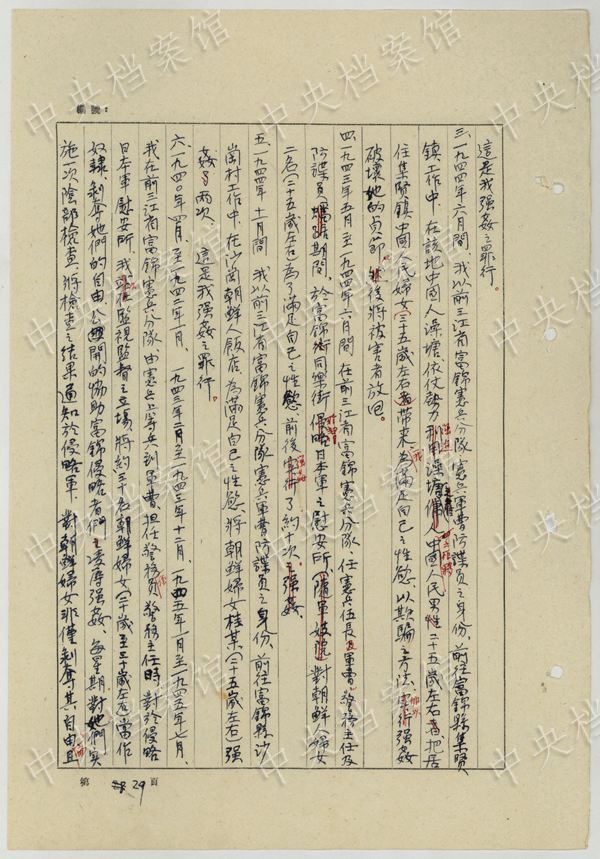 編號：
這是我强姦之罪行。
三、一九四四年六月間、我以前三江省富錦憲兵分隊、憲兵軍曹防諜員之身份、前往富錦縣集賢
鎮工作中、在該地中國人澡塘、依仗勢力、利用澡塘傭人中國人民男性二十五歲左右者把居
住集賢鎮中國人民婦女（三十五歲左右）者带来、為滿足自己之性慾、以欺騙之方法、實行强姦
破壞她的貞節、後將被害者放回。
四、一九四三年五月至一九四四年六月間、在前三江省富錦憲兵分隊、任憲兵伍長及軍曹、警務主任及
防諜員期間、於富錦街同樂街侵略日本軍之慰安所、對朝鮮人婦女
二名（二十五歲左右）為了滿足自己之性慾、前後實行了約十次之强姦。
五、一九四四年十月間、我以前三江省富錦憲兵分隊、憲兵軍曹防諜員之身份、前往富錦縣沙
崗村工作中、在沙崗朝鮮人飯店、為滿足自己之性慾、將朝鮮婦女桂某（三五歲左右）强
姦了兩次。這是我强姦之罪行。
六、一九四〇年四月、至一九四二年一月、一九四三年二月至一九四三年十二月、一九四五年一月至一九四五年七月、
我在前三江省富錦憲兵分隊由憲兵上等兵到軍曹、担任警務員、警務主任時、對於侵略
日本軍慰安所、我站在監視監督之立場、將約三十名朝鮮婦女（二十歲至三十歲左右）當作
奴隸、剝奪她們的自由、公開的協助富錦侵略者們之凌辱强姦、每星期、對她們實
施一次陰部檢查、將檢查之結果通知於侵略軍、對朝鮮婦女非僅剝奪其自由且
第 29 頁
中央档案馆
中央档案馆
中央档案馆
中央档案馆
中央档案馆
中央档案馆